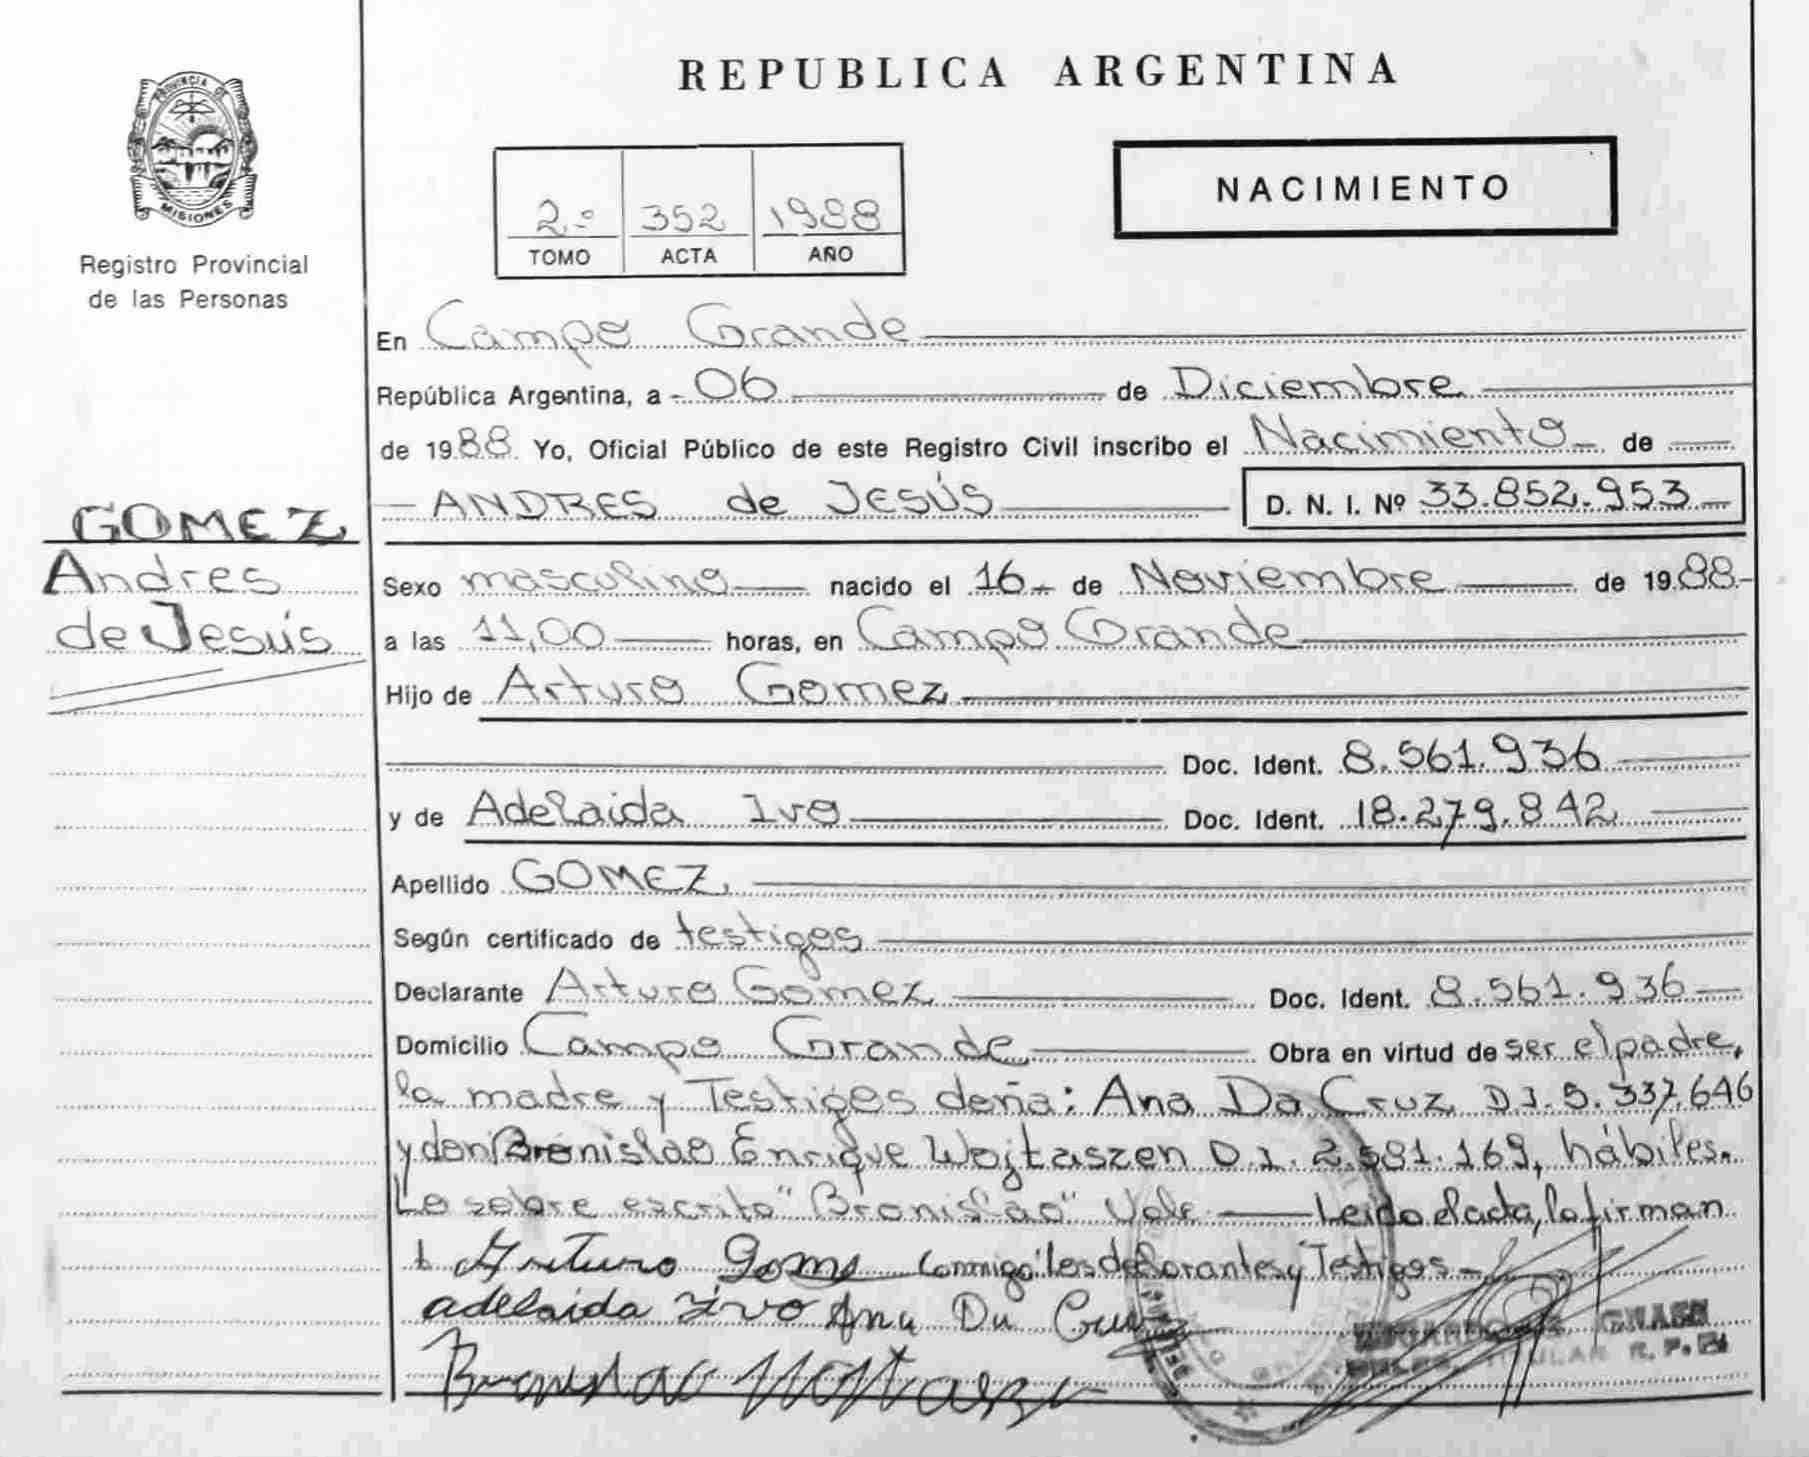 PROVINCIA DE
MISIONES
Registro Provincial
de las Personas
REPUBLICA ARGENTINA
2º 352 1988
TOMO ACTA AÑO
NACIMIENTO
En Campo Grande
República Argentina, a 06 de Diciembre
de 1988 Yo, Oficial Público de este Registro Civil inscribo el Nacimiento de
ANDRES de JESÚS D. N. I. Nº 33.852.953
GOMEZ
Andres
de Jesús
Sexo masculino nacido el 16 de Noviembre de 1988
a las 11,00 horas, en Campo Grande
Hijo de Arturo Gomez
Doc. Ident. 8.561.936
y de Adelaida Ivo Doc. Ident. 18.279.842
Apellido GOMEZ,
Según certificado de testigos
Declarante Arturo Gomez Doc. Ident. 8.561.936
Domicilio Campo Grande, Obra en virtud de ser el padre,
la madre y Testigos doña: Ana Da Cruz D.I. 5.337.646
y don Bronislao Enrique Wojtaszen D.I. 2.581.169, hábiles.
Lo sobre escrito "Bronislao" Vale Leido el acta, la firman
Arturo Gome conmigo los declarantes y Testigos
adelaida ivo Ana Da Cruz
Bronislao
R. P.